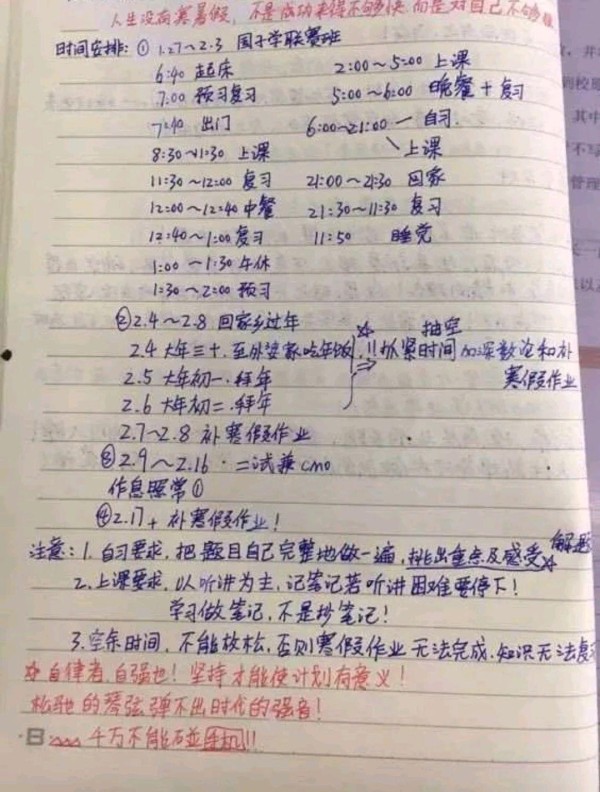 人生没有寒暑假，不是成功来得不够快 而是对自己不够狠
时间安排：① 1.27~2.3 国子学联赛班
6:40 起床 2:00~5:00 上课
7:00 预习复习 5:00~6:00 晚餐+复习
7:40 出门 6:00~21:00 — 自习.
8:30~11:30 上课 上课
11:30~12:00 复习 21:00~21:30 回家
12:00~12:40 中餐 21:30~11:30 复习
12:40~1:00 复习 11:50 睡觉
1:00~1:30 午休
1:30~2:00 预习
②2.4~2.8 回家乡过年 ☆ 抽空
2.4 大年三十.至外婆家吃年饭 !!抓紧时间加深数论和补
2.5 大年初一.拜年 寒假作业
2.6 大年初二.拜年
2.7~2.8 补寒假作业
③2.9~2.16 · 二试兼cmo
作息照常①
④2.17+ 补寒假作业！
注意：1.自习要求，把题目自己完整地做一遍，挑出重点及感受☆解题
2.上课要求，以听讲为主，记笔记若听讲困难要停下！
学习做笔记，不是抄笔记！
3.空余时间，不能放松，否则寒假作业无法完成.知识无法复习
☆自律者，自强也！坚持才能使计划有意义！
松弛的琴弦弹不出时代的强音！
千万不能碰手机!!